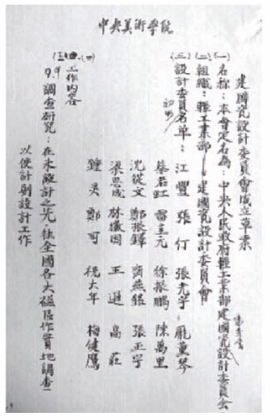 中央美術學院
建國瓷設計委員會成立草案
(一)名称：本會定名為：中央人民政府輕工業部建國瓷設計委員會
(二)組織：輕工業部
建國瓷設計委員會
(三)設計委員名單：江豐 張仃 張光宇 龐薰琹
蔡若虹 雷圭元 徐振鵬 陳萬里
沈從文 鄭振鐸 齊燕銘 張正宇
梁思成 林徽因 王遜 高莊
鍾灵 鄭可 祝大年 梅健鷹
(四)工作內容
調查研究：在未設計之先 往全國各大磁區作實地調查
以便計劃設計工作